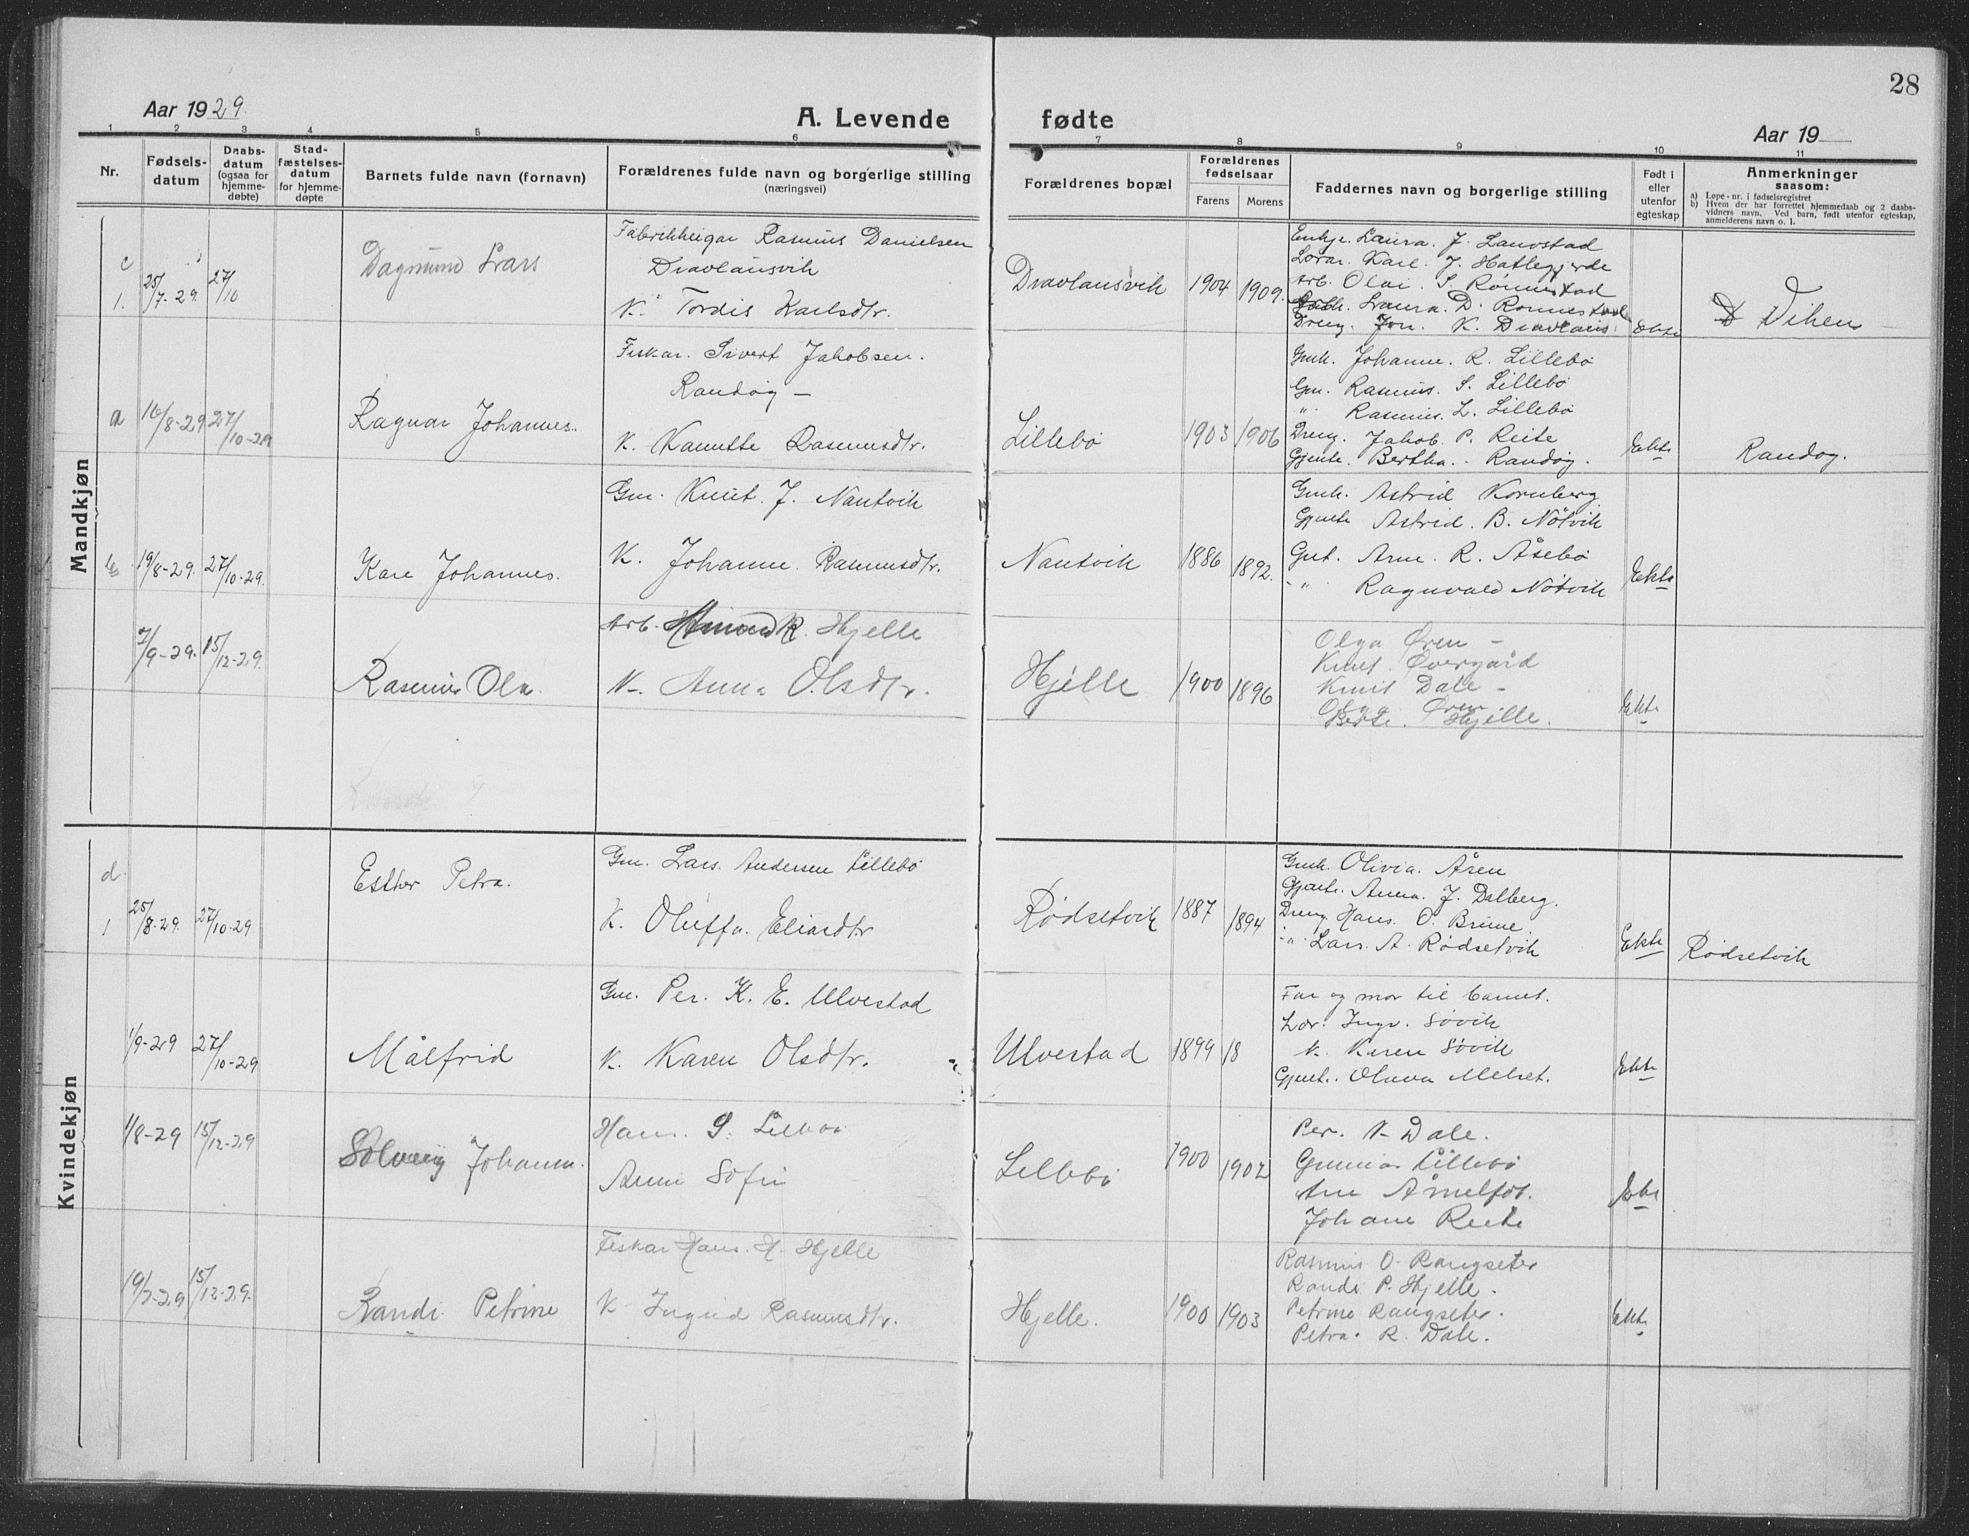 28
Aar 1929
A. Levende fødte
Aar 19
1 2 3 4 5 6 7 8 9 10 11
Nr.
Fødsels-
datum
Daabs-
datum
(ogsaa for
hjemme-
døbte)
Stad-
fæstelses-
datum
for hjemme-
døpte
Barnets fulde navn (fornavn)
Forældrenes fulde navn og borgerlige stilling
(næringsvei)
Forældrenes bopæl
Forældrenes
fødselsaar
Farens Morens
Faddernes navn og borgerlige stilling
Født i
eller
utenfor
egteskap
Anmerkninger
saasom:
a) Løpe-nr. i fødselsregistret
b) Hvem der har forrettet hjemmedaab og 2 daabs-
vidners navn. Ved barn, født utenfor egteskap,
anmelderens navn o. l.
Mandkjøn
c
1.
25/7-29.
27/10
Dagmund Lars
Fabrikkeigar Rasmus Danielsen
Dravlausvik
K. Tordis Karlsdtr.
Dravlausvik
1904
1909.
Enkje. Laura. J. Lauvstad
Karl. J. Hatlegjerde
Arb. Olai. S. Rønnestad
Laura. D. Rønnestad
Dreng. Jon. K. Dravlaus
Ekte
Viken
a
16/8-29
27/10-29
Ragnar Johannes.
Fiskar. Sivert Jakobsen.
Randøg —
K. Kanutte Rasmusdtr.
Lillebø
1903
1906
Gmk. Johanne. R. Lillebø
Gm. Rasmus. S. Lillebø
" Rasmus. L. Lillebø
Dreng. Jakob. P. Reite
Gjente. Bertha. Randøg.
Ekte
Randøg.
b
19/8-29.
27/10-29.
Kare Johannes.
Gm. Knut. J. Nautvik
K. Johanne Rasmusdtr.
Nautvik
1886
1892.
Gmk. Astrid Kornberg
Gjente Astrid. B. Nøtvik
Gut. Arne. R. Åsebø
" Ragnvald Nøtvik
Ekte
7/9-29.
15/12-29.
Rasmus Ola.
Arb. K. Hjelle
K. Anna Olsdtr.
Hjelle
1900
1896
Olga Øren —
Knut. Øvergård
Knut Dale —
Olga Øren
Berte. Hjelle.
Ekte
Kvindekjøn
d.
1
25/8-29.
27/10-29
Esther Petra.
Gm. Lars. Andersen Lillebø
K. Oluffa. Eliasdtr
Rødsetvik
1887
1894
Gmk. Olivia. Åsen
Gjente. Anna. J. Dalberg.
Dreng Hans. O. Brune.
" Lars. A. Rødsetvik
Ekte
Rødsetvik
1/9-29
27/10-29
Målfrid
Gm. Per. K. E. Ulvestad
K. Karen Olsdtr.
Ulvestad
1899
18
Far og mor til barnet.
Lær. Ingv. Søvik
K. Karen Søvik
Gjent. Oluva Melset.
Ekte
1/8-29
15/12-29
Solveig Johanna.
Hans. S. Lillebø
Anne Sofie
Lillebø
1900
1902
Per. K. Dale.
Gunnar Lillebø
Åmelfot.
Johane Reite
Ekte
19/7-29
15/12-29.
Randi Petrine
Fiskar Hans. H. Hjelle
K. Ingrid Rasmusdtr.
Hjelle.
1900
1903
Rasmus O. Rangseter
Rande P. Hjelle.
Petrine Rangseter.
Petra. R. Dale.
Ekte